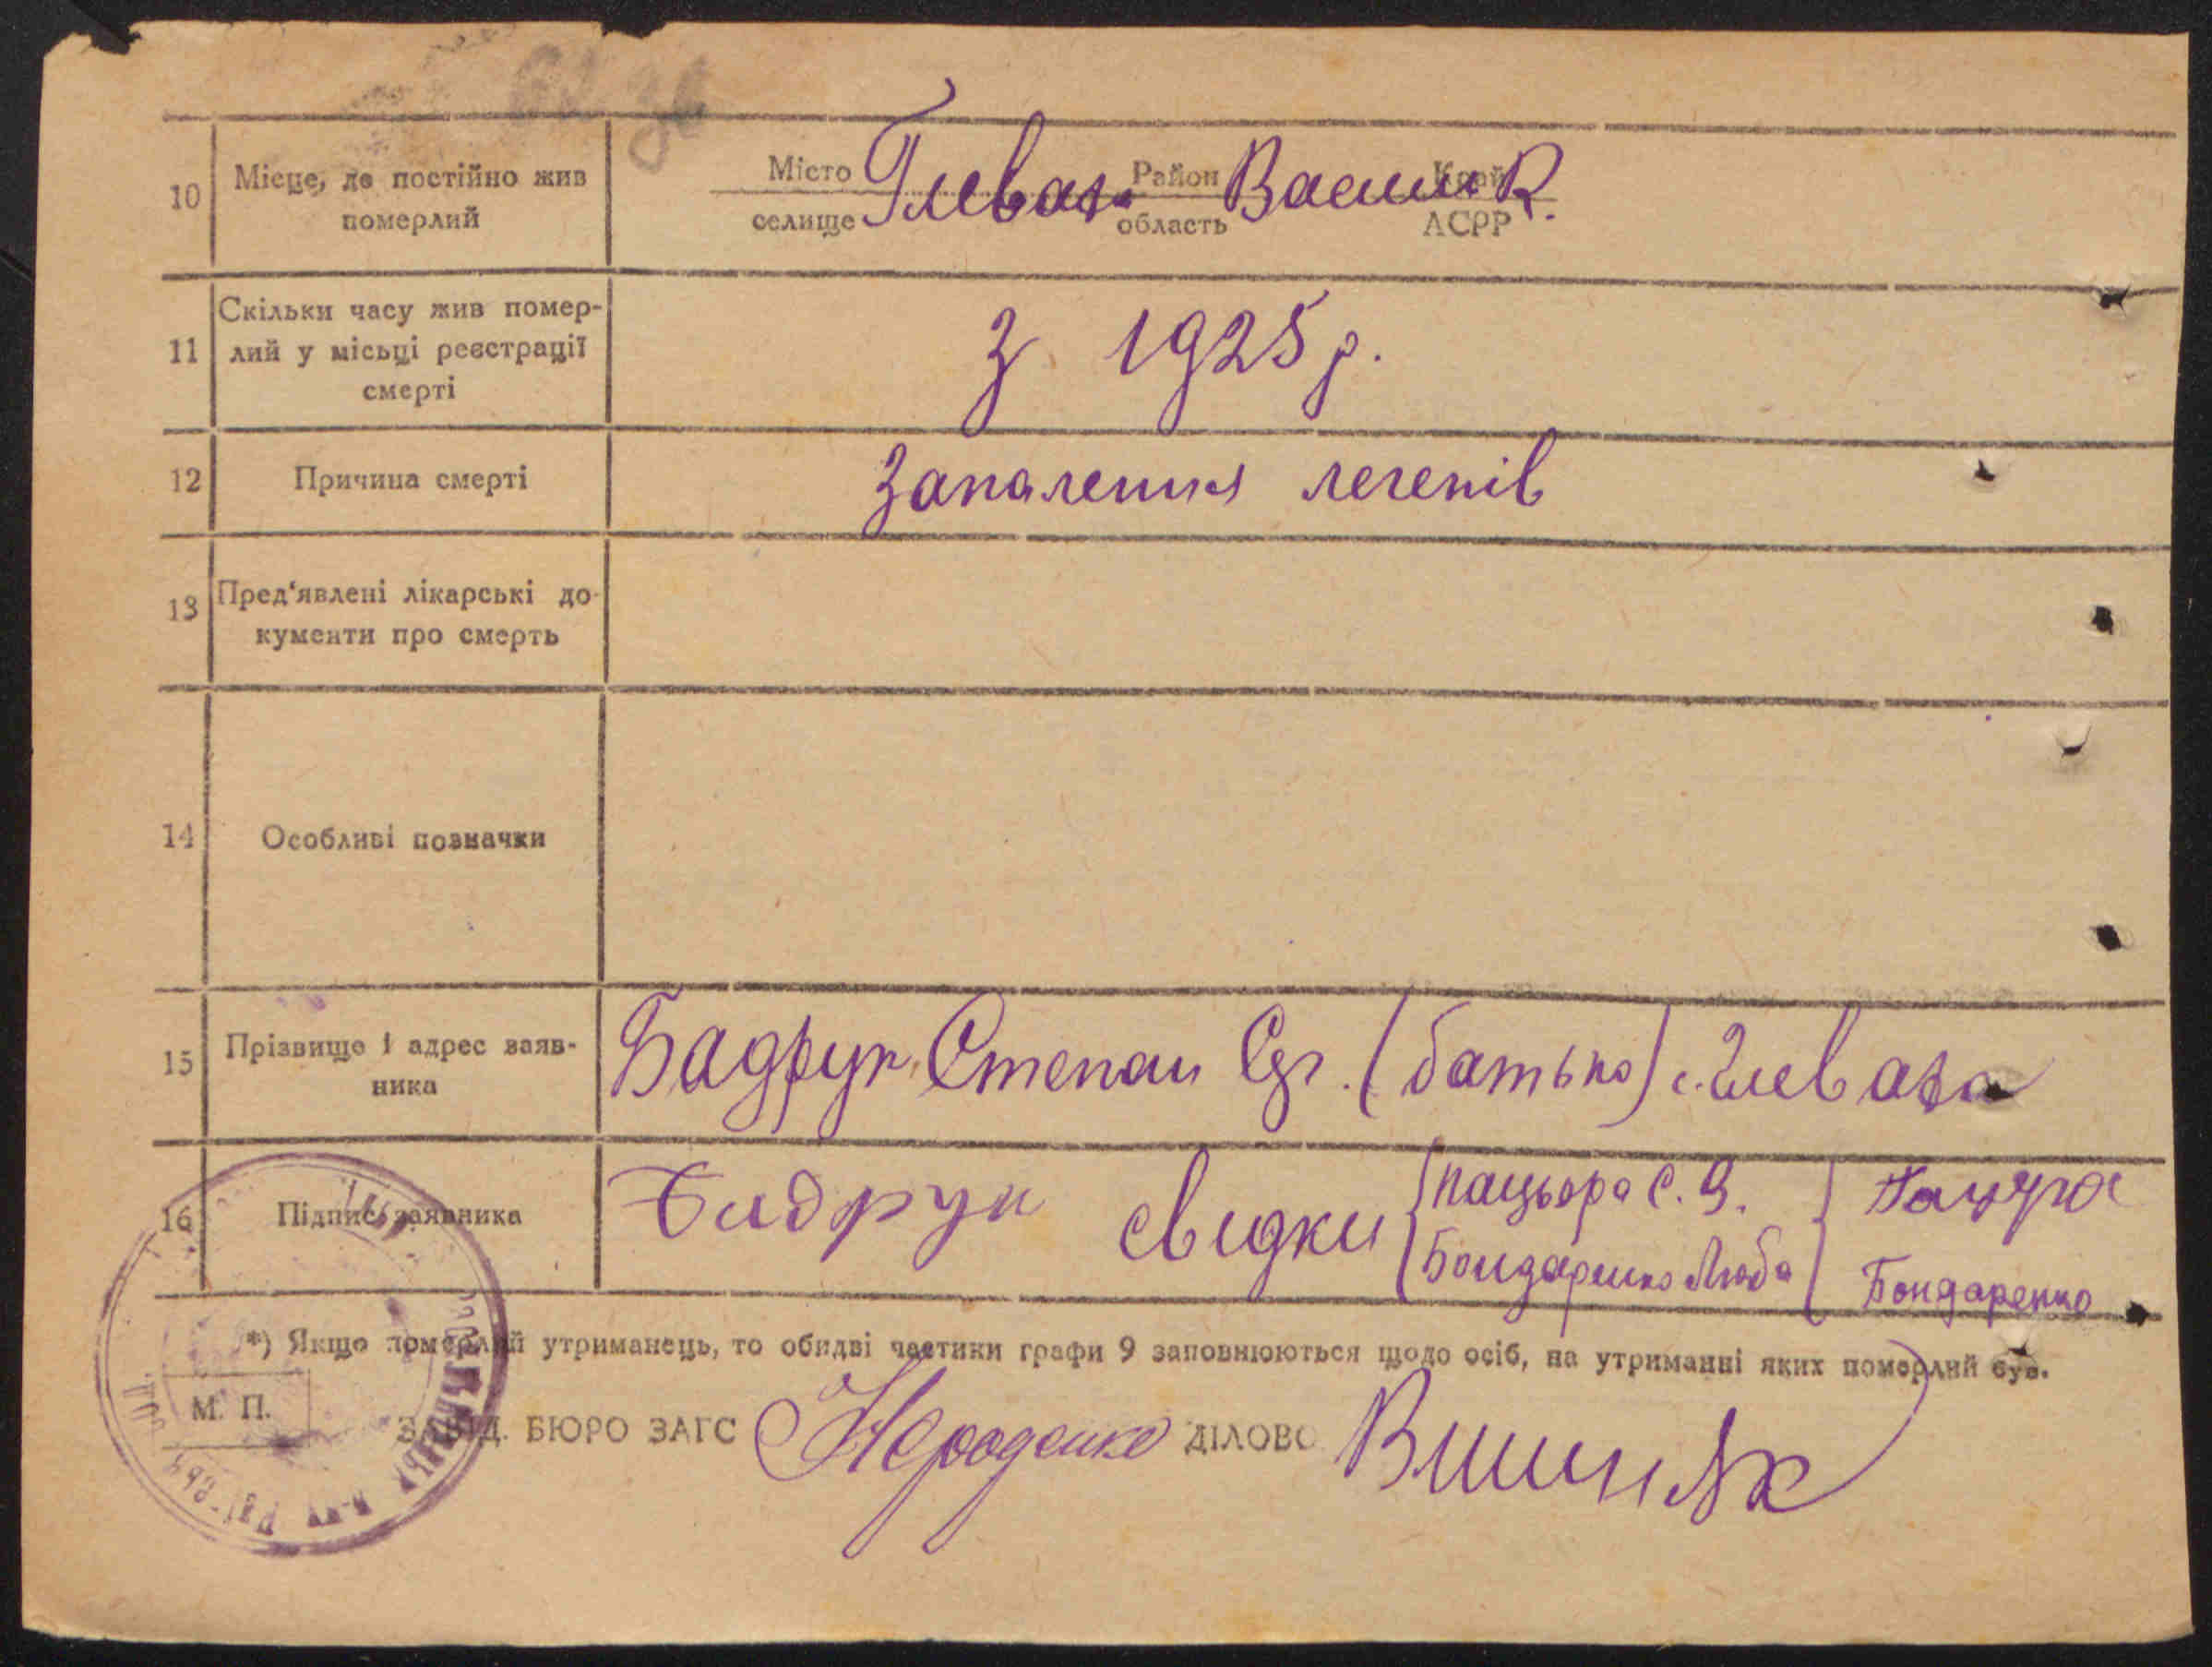 10 Місце, де постійно жив померлий
Місто селище Глеваха Район область Васильк. Край АСРР
11 Скільки часу жив помер-
лий у місьці реєстрації
смерті
З 1925 р.
12 Причина смерті
Запалення легенів
13 Пред'явлені лікарські до-
кументи про смерть
14 Особливі позначки
15 Прізвище і адрес заяв-
ника
Бадрук Степан (батько) с. Глеваха
16 Підпис заявника
Бадрук свидки
Пацьора С.
Бондаренко Люба
Бондаренко
*) Якщо померлий утриманець, то обидві частики графи 9 заповнюються щодо осіб, на утриманні яких померлий був.
М. П.
ЗАВІД. БЮРО ЗАГС ДІЛОВО